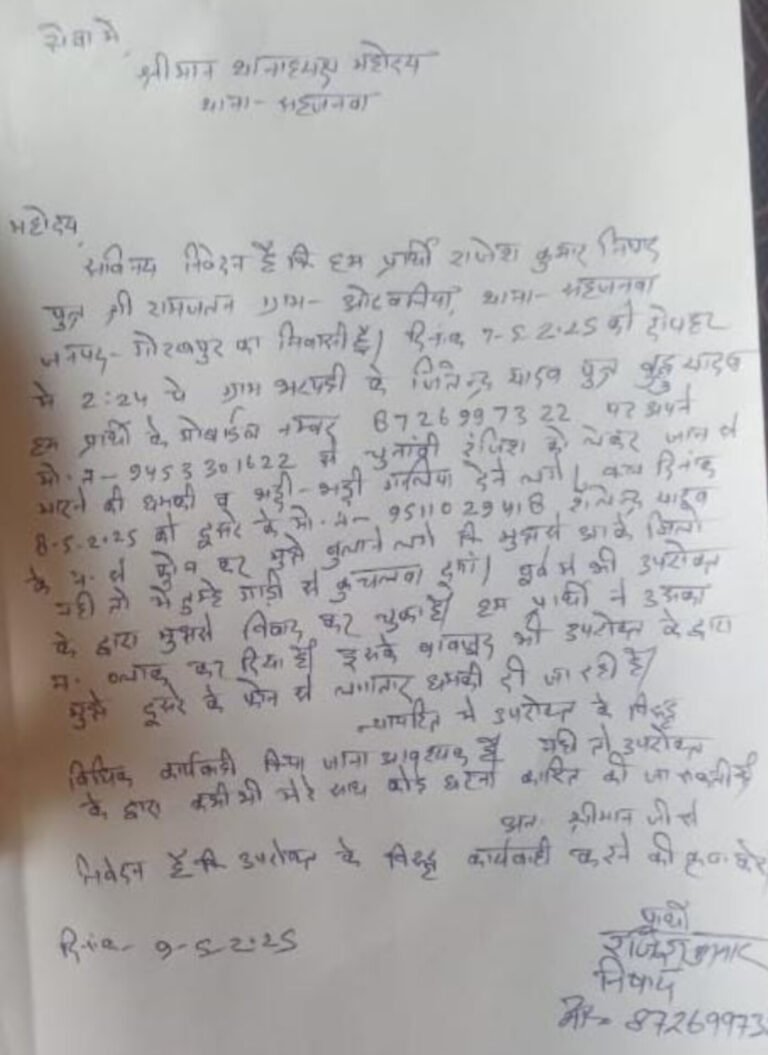 सेवा में,
श्रीमान थानाध्यक्ष महोदय
थाना- सहजनवा
महोदय,
सविनय निवेदन है कि हम प्रार्थी राजेश कुमार निषाद
पुत्र श्री रामजतन ग्राम- थाना- सहजनवा
जनपद- गोरखपुर का निवासी है। दिनांक 7-5-2025 को दोपहर
मे 2:24 पे ग्राम के जितेन्द्र यादव पुत्र यादव
हम प्रार्थी के मोबाईल नम्बर 8726997322 पर अपने
मो. न- 9453301622 से चुनावी रंजिश को लेकर जान से
मारने की धमकी व भद्दी-भद्दी गालिया देने लगे। दिनांक
8-5-2025 को दूसरे के मो. न- 9511029418 यादव
के न. से फोन कर मुझे बुलाने लगे कि मुझसे आके मिलो
नही तो मै तुम्हे गाड़ी से कुचलवा दूंगा। पूर्व मे भी उपरोक्त
के द्वारा मुझसे विवाद कर चुका है। हम प्रार्थी ने उसका
न. ब्लाक कर दिया है। इसके बावजूद भी उपरोक्त के द्वारा
मुझे दूसरे के फोन से लगातार धमकी दी जा रही है।
न्यायहित मे उपरोक्त के विरुद्ध
विधिक कार्यवाही किया जाना आवश्यक है नही तो उपरोक्त
के द्वारा कभी भी मेरे साथ कोई घटना कारित की जा सकती है
अतः श्रीमान जी से
निवेदन है कि उपरोक्त के विरुद्ध कार्यवाही करने की कृपा करे
दिनांक- 9-5-2025
प्रार्थी
राजेश कुमार
निषाद
मो- 87269973